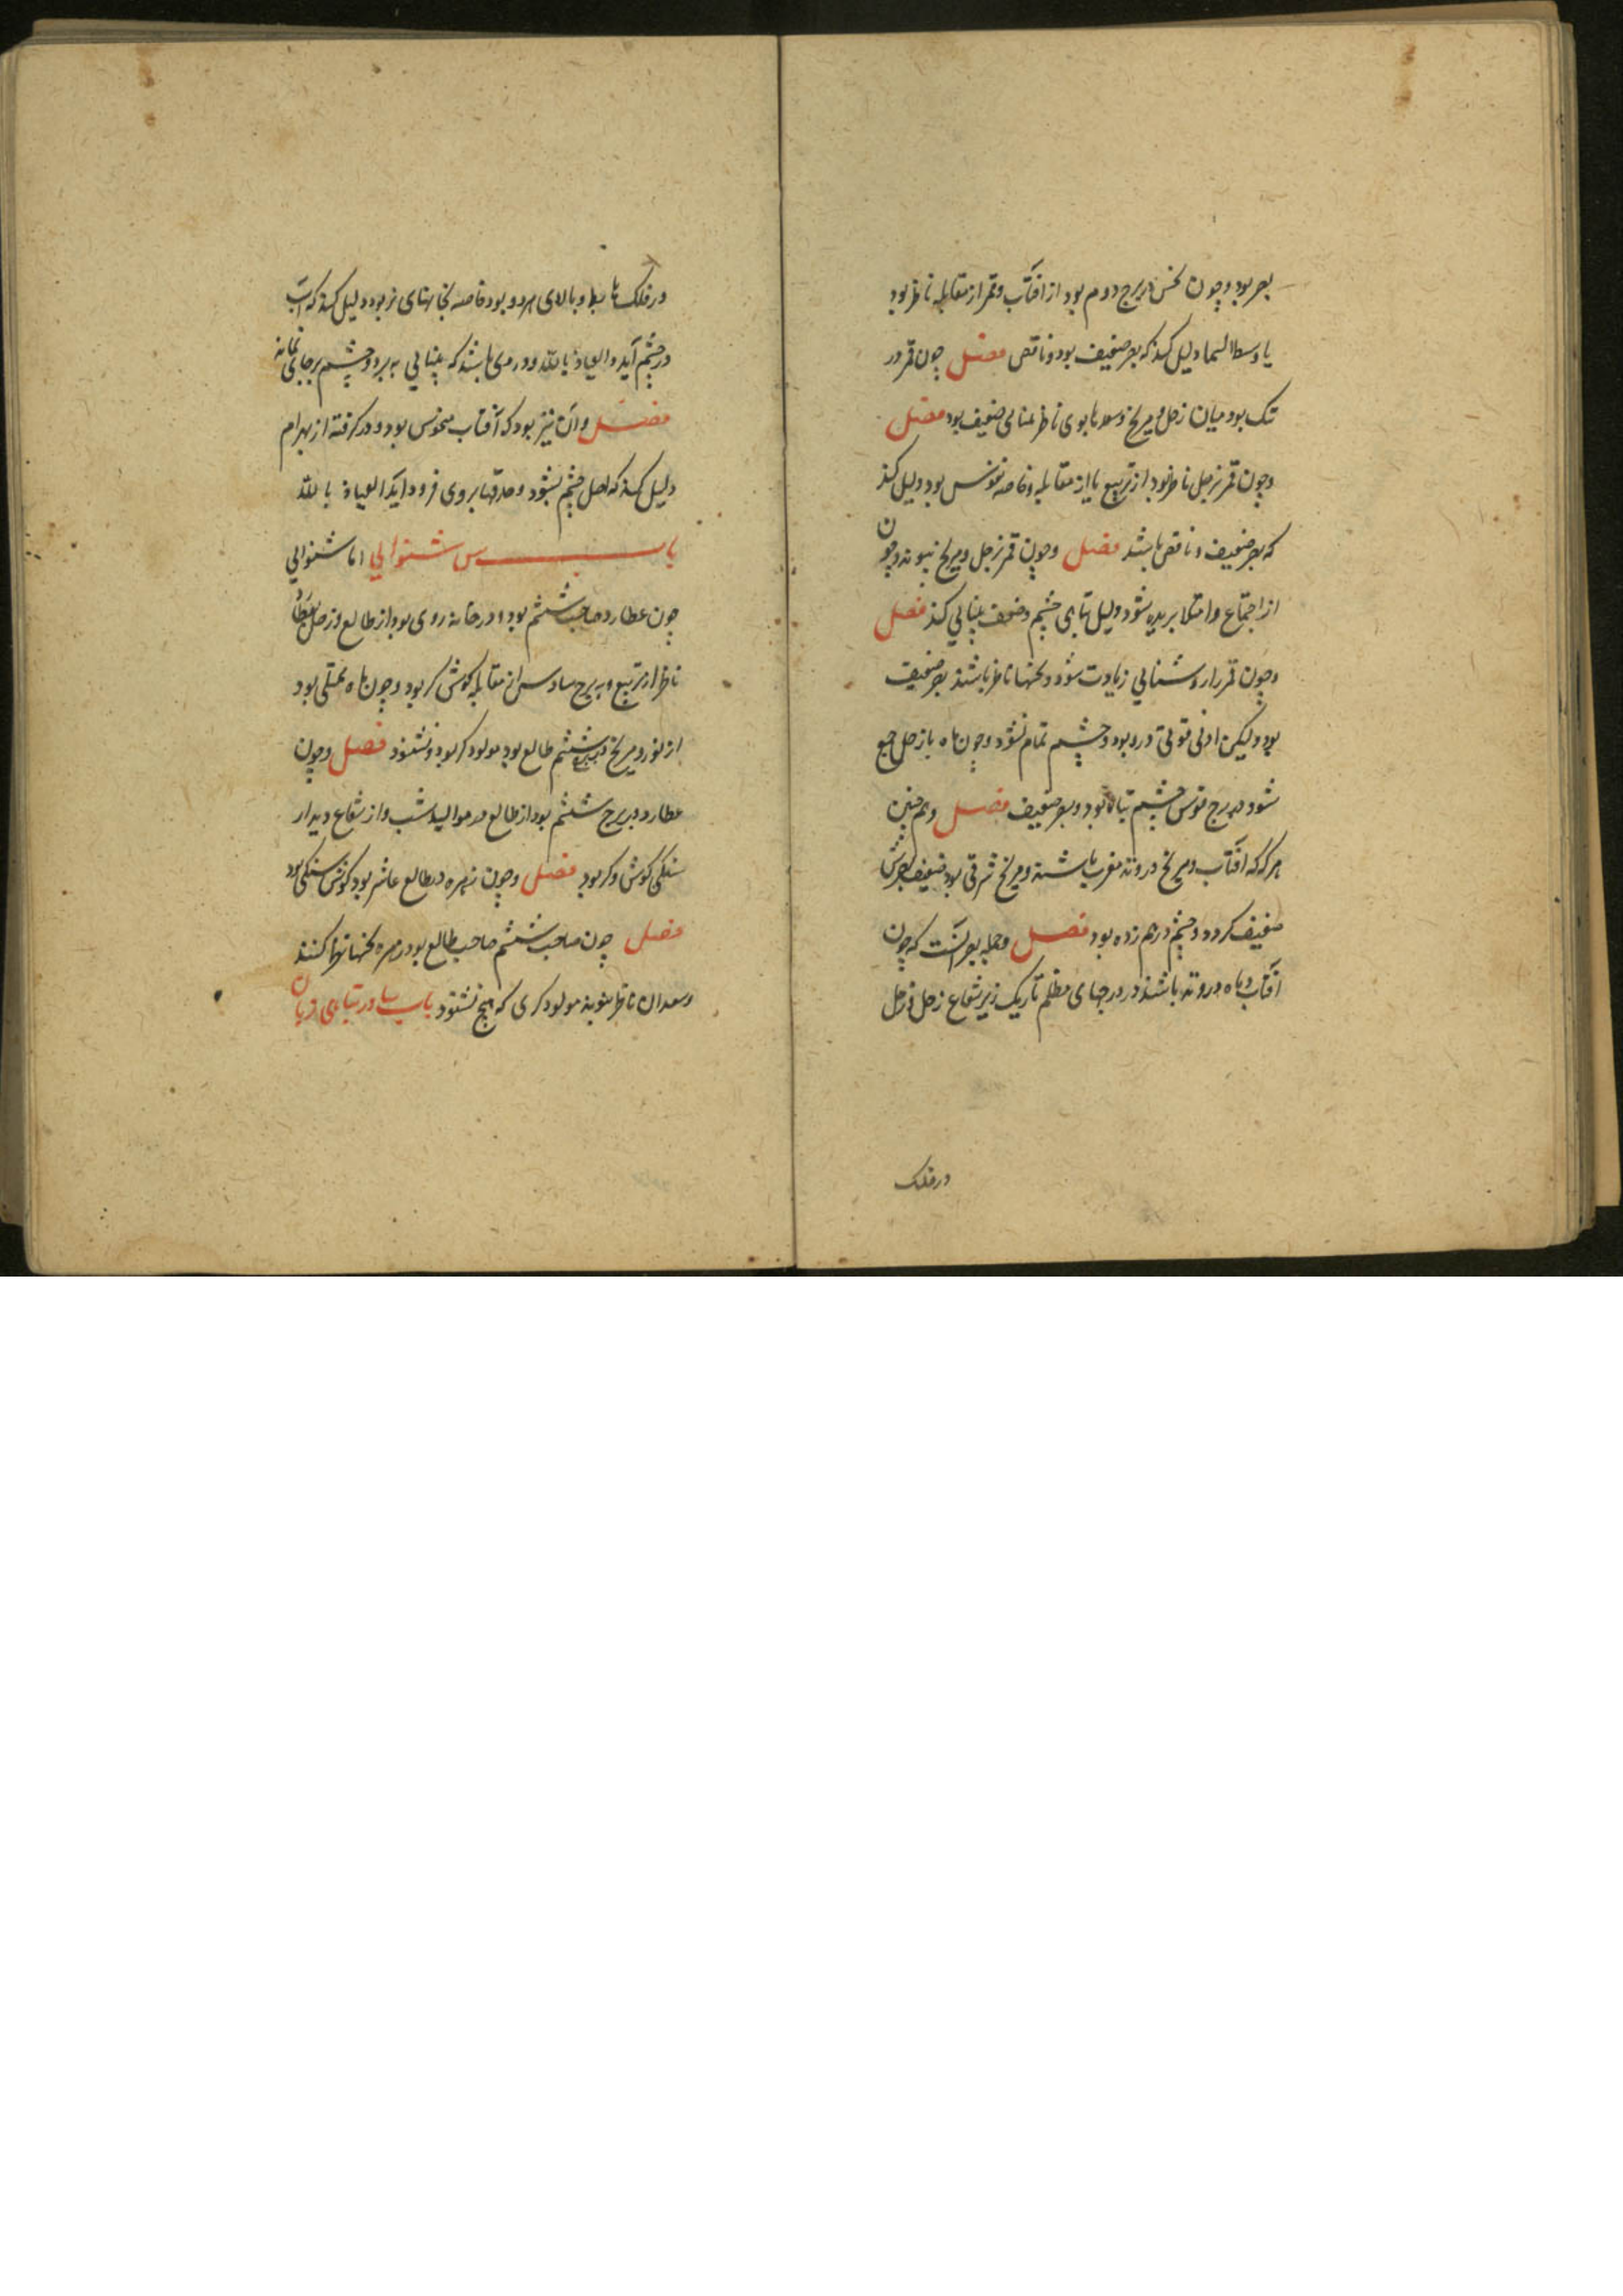 بصر بود و چون نحس در برج دوم بود از افتآب و قمر از مقابله ناظر بود
یا وسط السما دلیل کند که بصر ضعیف بود و ناقص فصل چون قمر در
تک بود میان زحل و مریخ و بوی ناظر ضعیف بود فصل
و چون قمر بزحل ناظر بود از تربیع یا از مقابله و خاصه منحوس بود دلیل کند
که بصر ضعیف و ناقص باشد فصل و چون قمر بزحل و مریخ و چون
از اجتماع و امتلا بریده شود دلیل تباهی چشم و ضعف بینایی کند فصل
و چون قمر را روشنایی زیادت شود و نحسها ناظر باشند بصر ضعیف
بود و لیکن ادنی قوتی درو بود و چشم تمام نشود و چون ماه با زحل جمع
شود در برج قوس چشم تباه بود و بصر ضعیف فصل و هم چنین
هر که که افتآب و مریخ در وتد مغرب باشند و مریخ شرقی بود ضعیف بصر
ضعیف کردد و چشم درهم زده بود فصل و جمله بصر آنست که چون
افتآب و ماه در وتد باشند در درجهای مظلم تاریک زیر شعاع زحل و زحل
در فلک
در فلک بالای هر دو بود خاصه دلیل کند که آب
در چشم آید و العیاذ بالله و در می باشد که بینایی ببرد و چشم بر جای بماند
فصل و آن نیز بود که آفتاب منحوس بود و در کرفته از بهرام
دلیل کند که اصل چشم بشود و حدقها بروی فرود آید العیاذ بالله
باب س شنوایی اما شنوایی
چون عطارد صاحب ششم بود و در خانه روی بود از طالع و زحل
ناظر از تربیع و ببرج سادس از مقابله کوش کر بود و چون ماه ممتلی بود
از نور و مریخ در برج ششم طالع بود مولود کر بود و نشنود فصل و چون
عطارد در برج ششم بود از طالع در موالید شب و از شعاع دیدار
سنکی کوش و کر بود فصل و چون زهره در طالع عاشر بود کوش سنکی بود
فصل چون صاحب ششم صاحب طالع بود در زهره نحسها کنند
و سعدان ناظر نبوند مولود کری که هیچ نشنود باب در تباهی زبان